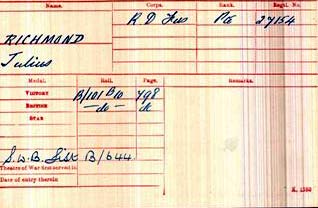 Name. Corps. Rank. Regtl. No.
RICHMOND R D Fus Pte 27154
Julius
Medal. Roll. Page. Remarks.
VICTORY B/101 B10 798
BRITISH -do- do
STAR
S.W.B. List B/644
Theatre of War first served in
Date of entry therein
K. 1380